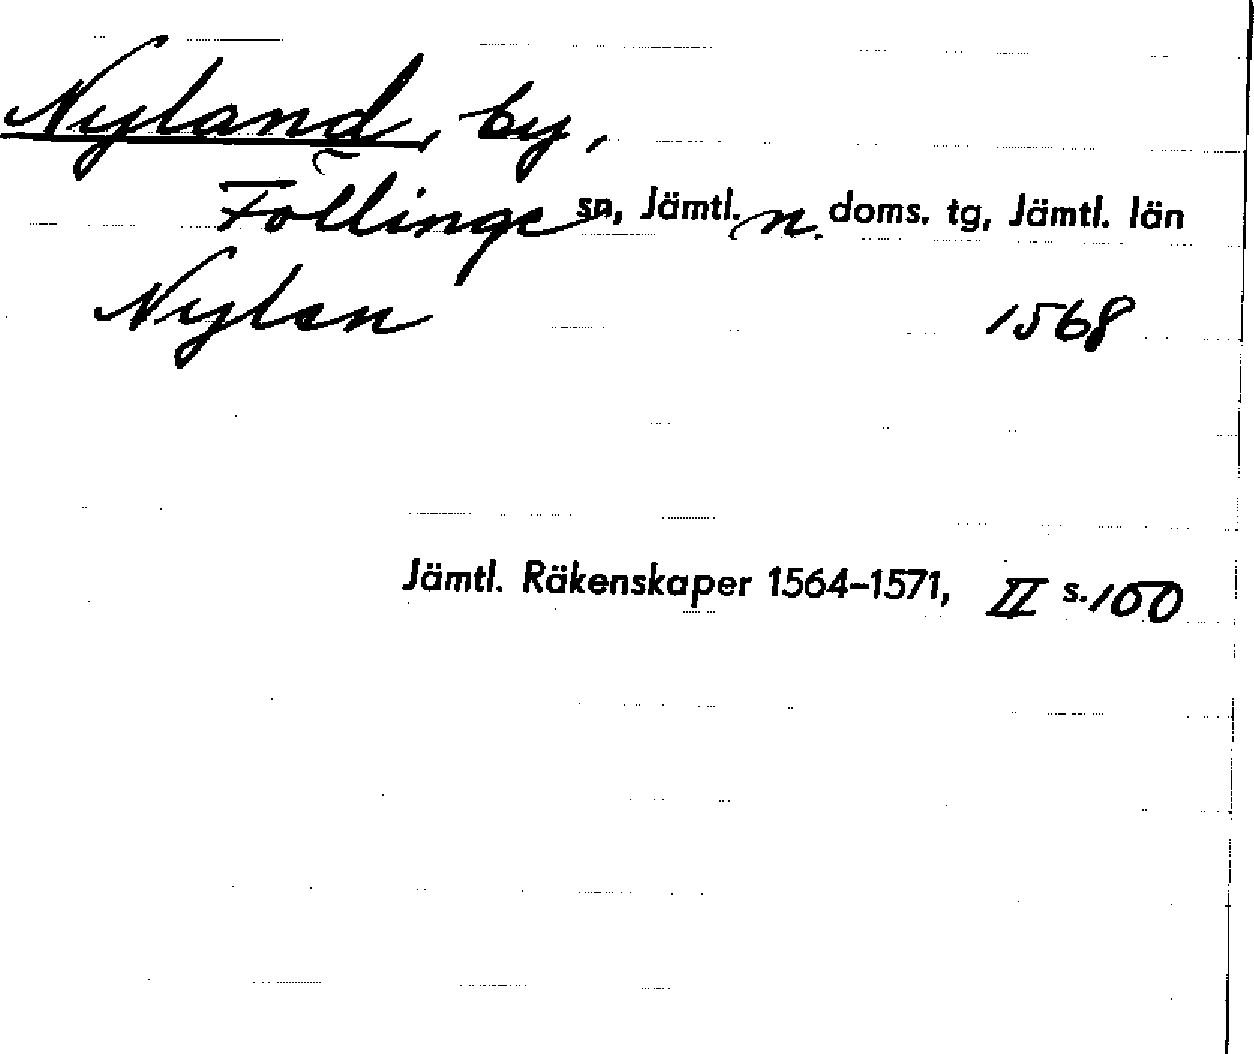 Nyland, by,
Föllinge sn, Jämtl. n. doms. tg, Jämtl. län
Nylan 1568
Jämtl. Räkenskaper 1564-1571, II s. 100